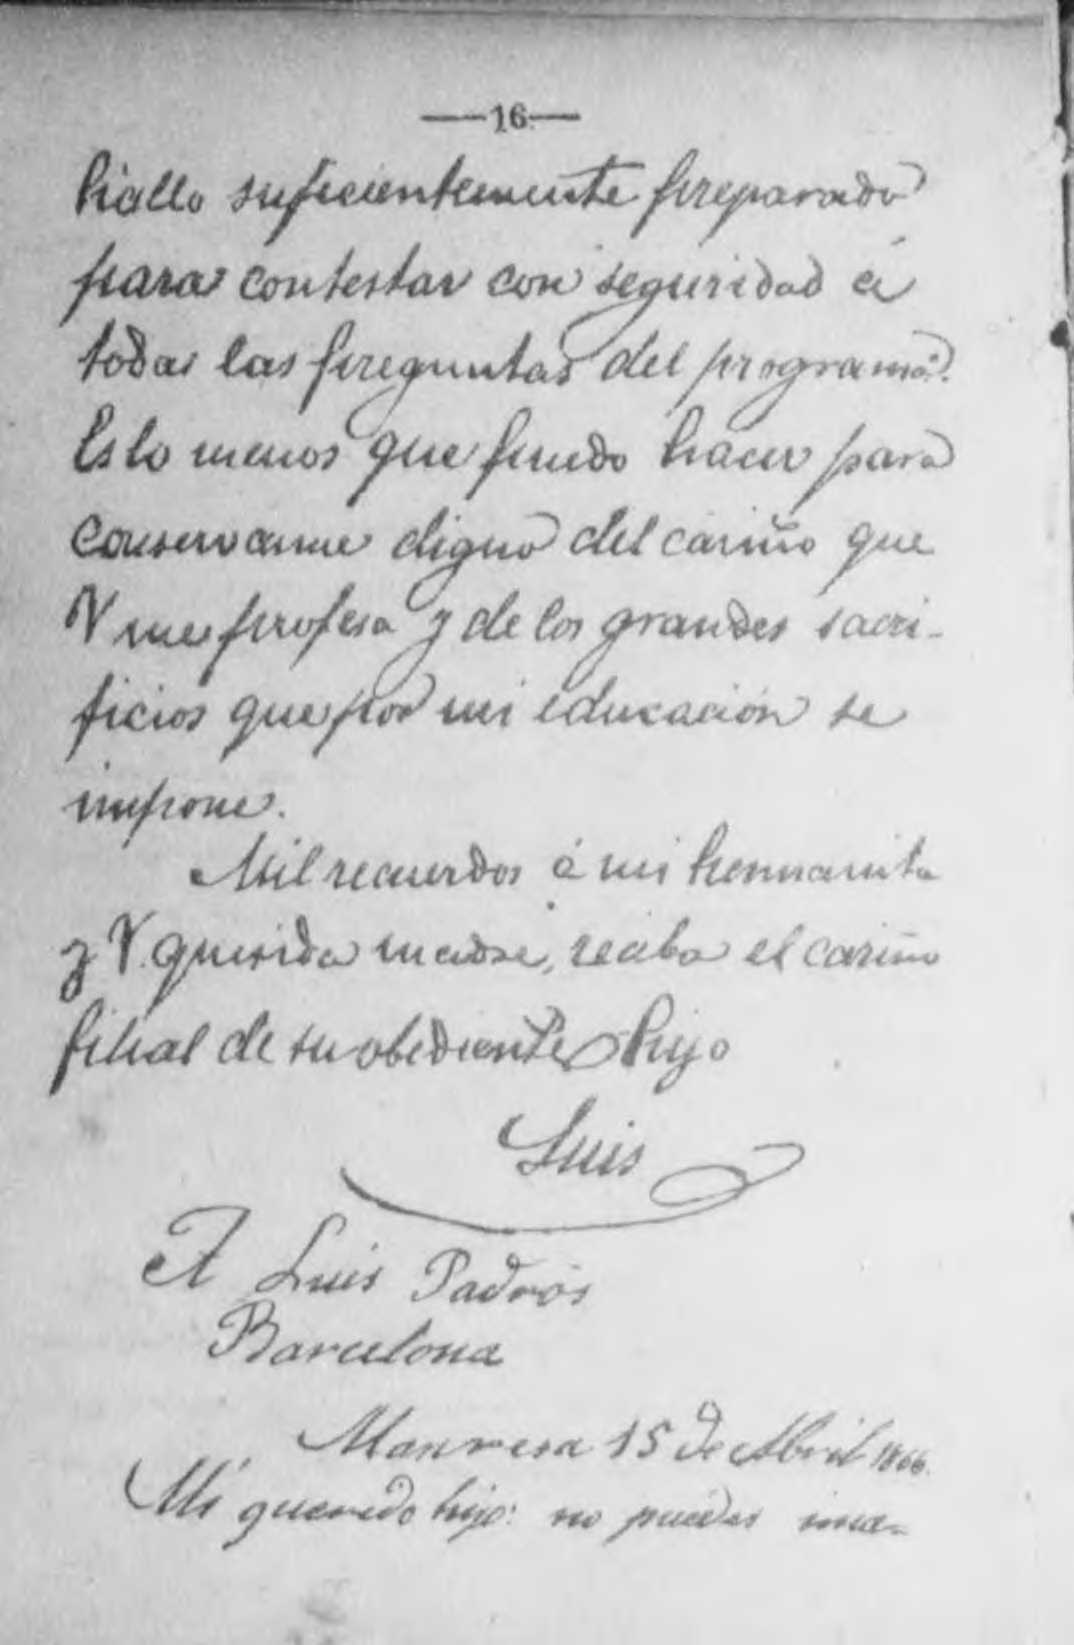 —16—
hallo suficientemente preparado
para contestar con seguridad á
todas las preguntas del programa.
Es lo menos que puedo hacer para
conservarme digno del cariño que
V me profesa y de los grandes sacri-
ficios que por mi educación se
impone.
Mil recuerdos á mi hermanita
y V. querida madre, reciba el cariño
filial de su obediente hijo
Luis
A Luis Padrós
Barcelona
Manresa 15 de Abril 1866.
Mi querido hijo: no puedes ima-